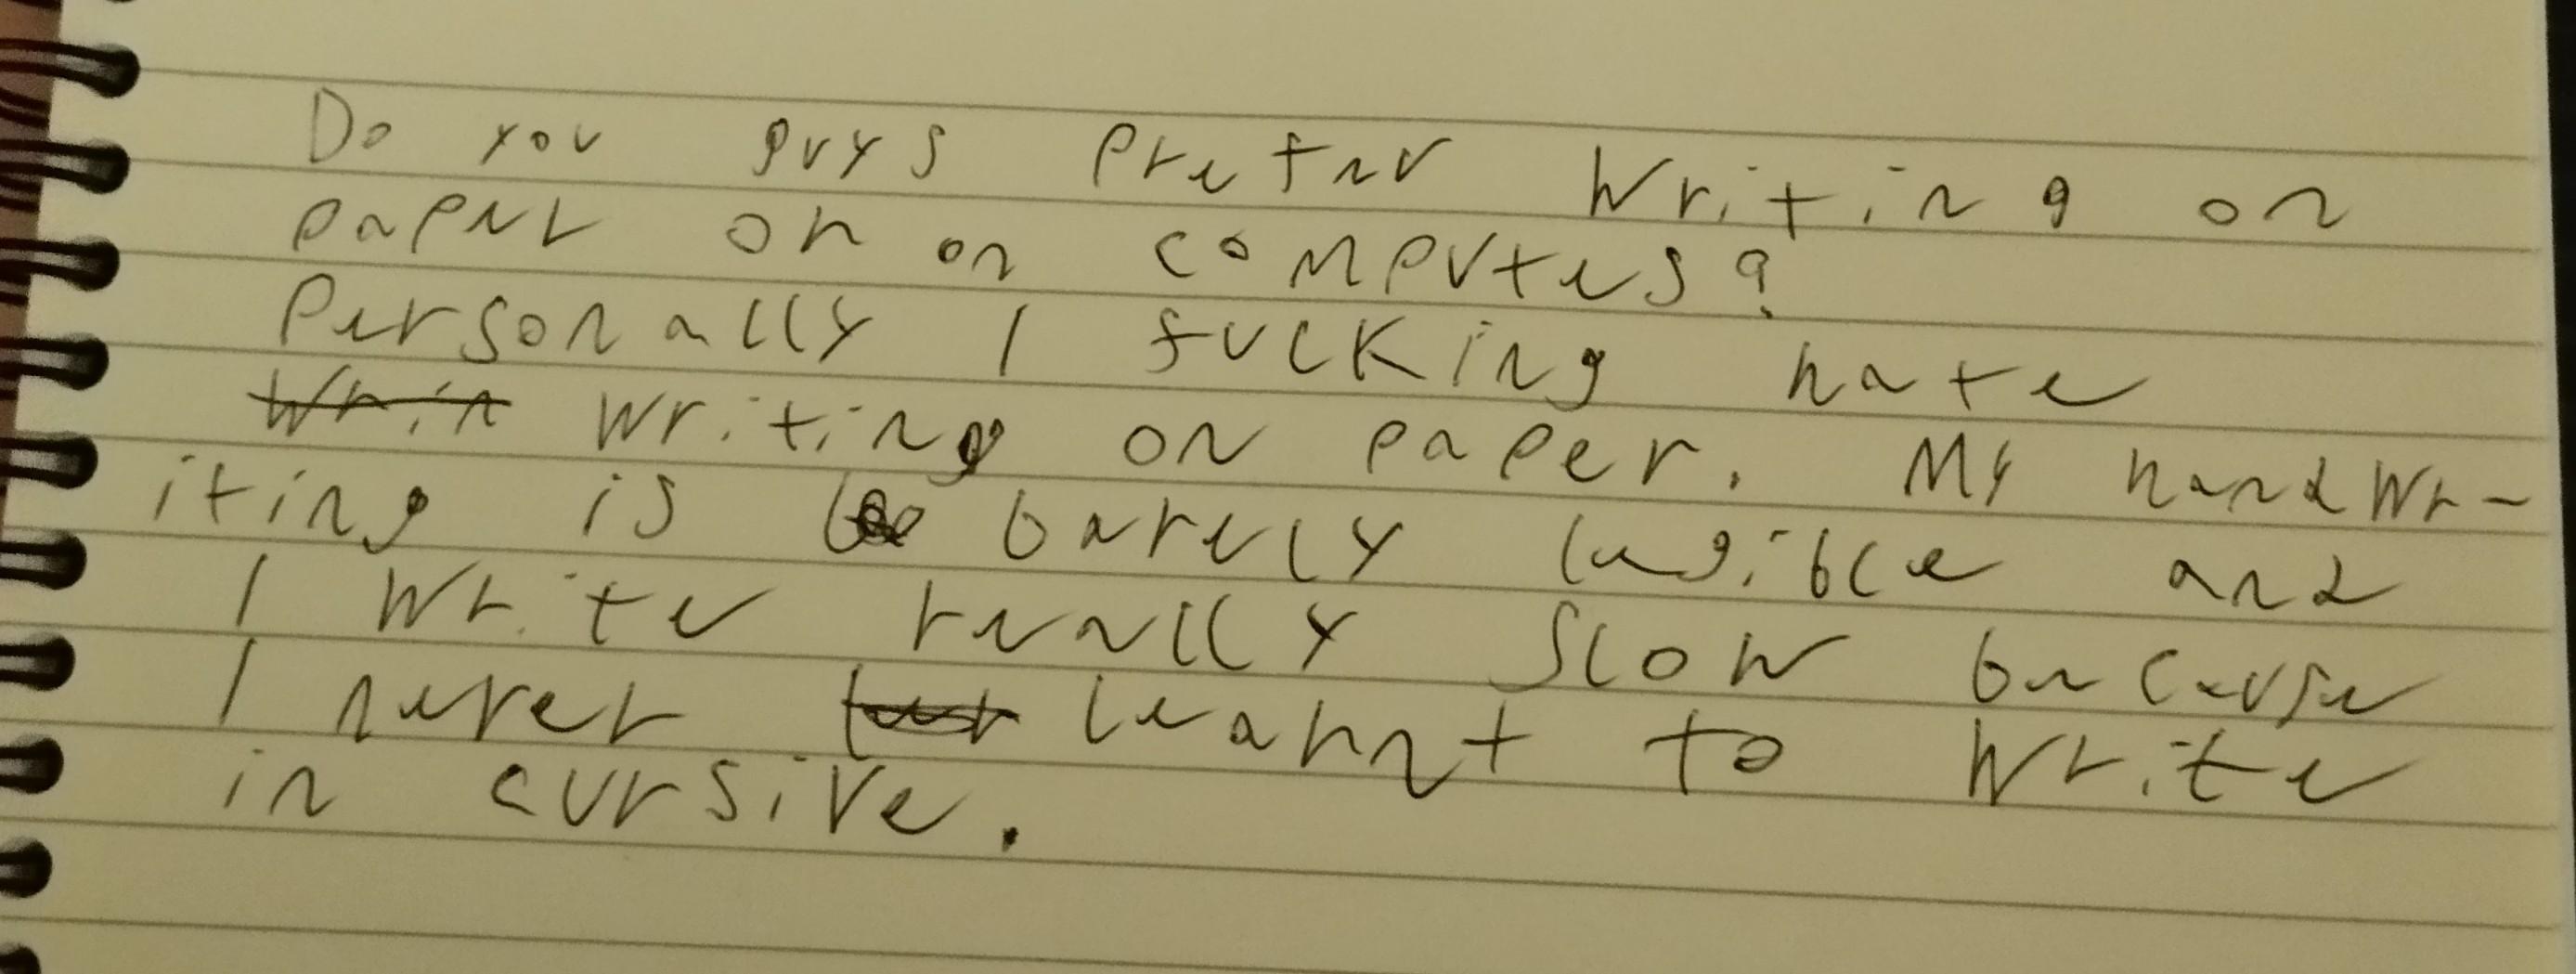 Do you guys prefer writing on
paper or on computes?
Personally I fucking hate
writing on paper. My handwr-
iting is barely legible and
I write really slow because
I never learnt to write
in cursive.